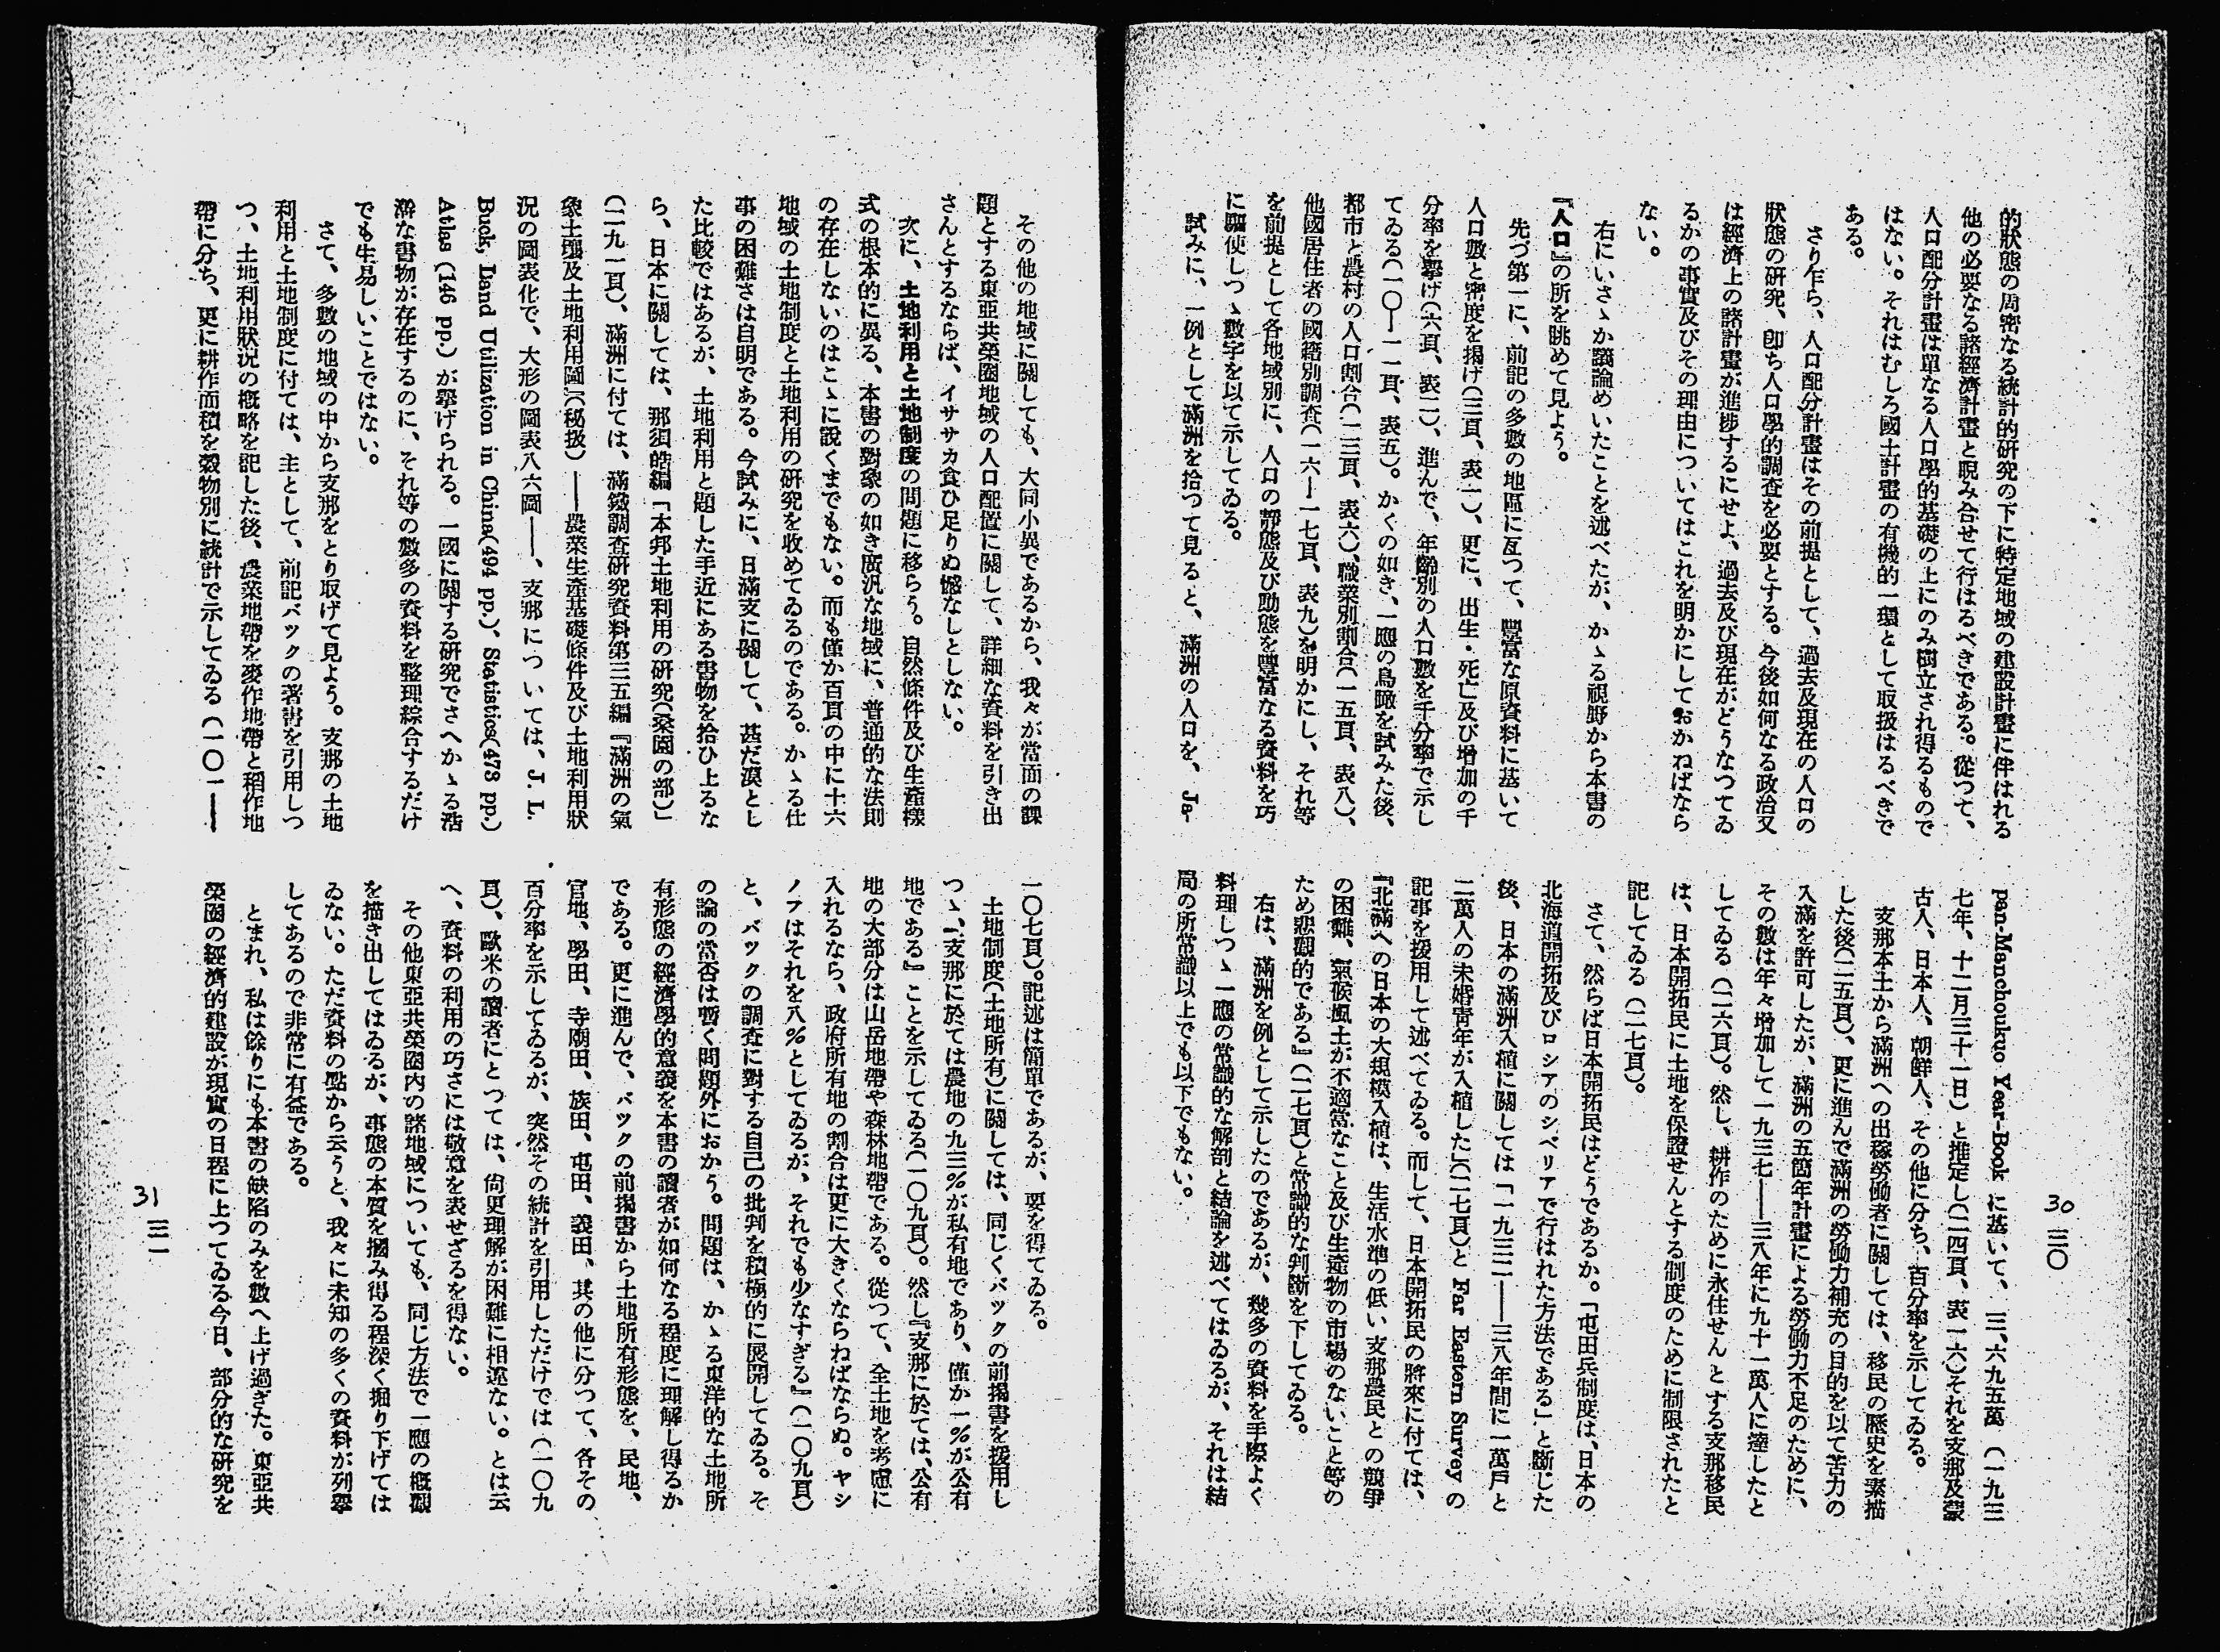 的狀態の周密なる統計的研究の下に特定地域の建設計畫に伴はれる
他の必要なる諸經濟計畫と睨み合せて行はるべきである。從つて、
人口配分計畫は單なる人口學的基礎の上にのみ樹立され得るもので
はない。それはむしろ國土計畫の有機的一環として取扱はるべきで
ある。
さり乍ら、人口配分計畫はその前提として、過去及現在の人口の
狀態の研究、卽ち人口學的調査を必要とする。今後如何なる政治又
は經濟上の諸計畫が進捗するにせよ、過去及び現在がどうなつてゐ
るかの事實及びその理由についてはこれを明かにしておかねばなら
ない。
右にいさゝか議論めいたことを述べたが、かゝる視野から本書の
『人口』の所を眺めて見よう。
先づ第一に、前記の多數の地區に亙つて、豐富な原資料に基いて
人口數と密度を揭げ(三頁、表一)、更に、出生・死亡及び增加の千
分率を擧げ(六頁、表二)、進んで、年齡別の人口數を千分率で示し
てゐる(一〇—一一頁、表五)。かくの如き、一應の鳥瞰を試みた後、
都市と農村の人口割合(一三頁、表六)、職業別割合(一五頁、表八)、
他國居住者の國籍別調査(一六—一七頁、表九)を明かにし、それ等
を前提として各地域別に、人口の靜態及び動態を豐富なる資料を巧
に驅使しつゝ數字を以て示してゐる。
試みに、一例として滿洲を拾つて見ると、滿洲の人口を、Ja-
pan-Manchoukuo Year-Book に基いて、三、六九五萬(一九三
七年、十二月三十一日)と推定し(二四頁、表一六)それを支那及蒙
古人、日本人、朝鮮人、その他に分ち、百分率を示してゐる。
支那本土から滿洲への出稼勞働者に關しては、移民の歷史を素描
した後(二五頁)、更に進んで滿洲の勞働力補充の目的を以て苦力の
入滿を許可したが、滿洲の五箇年計畫による勞働力不足のために、
その數は年々增加して一九三七——三八年に九十一萬人に達したと
してゐる(二六頁)。然し、耕作のために永住せんとする支那移民
は、日本開拓民に土地を保證せんとする制度のために制限されたと
記してゐる(二七頁)。
さて、然らば日本開拓民はどうであるか。「屯田兵制度は、日本の
北海道開拓及びロシアのシベリアで行はれた方法である」と斷じた
後、日本の滿洲入植に關しては「一九三二——三八年間に一萬戶と
二萬人の未婚靑年が入植した」(二七頁)と Far Eastern Survey の
記事を援用して述べてゐる。而して、日本開拓民の將來に付ては、
『北滿への日本の大規模入植は、生活水準の低い支那農民との競爭
の困難、氣候風土が不適當なこと及び生產物の市場のないこと等の
ため悲觀的である』(二七頁)と常識的な判斷を下してゐる。
右は、滿洲を例として示したのであるが、幾多の資料を手際よく
料理しつゝ一應の常識的な解剖と結論を述べてはゐるが、それは結
局の所常識以上でも以下でもない。
30
三〇
その他の地域に關しても、大同小異であるから、我々が當面の課
題とする東亞共榮圈地域の人口配置に關して、詳細な資料を引き出
さんとするならば、イササカ食ひ足りぬ憾なしとしない。
次に、土地利用と土地制度の問題に移らう。自然條件及び生產樣
式の根本的に異る、本書の對象の如き廣汎な地域に、普通的な法則
の存在しないのはこゝに說くまでもない。而も僅か百頁の中に十六
地域の土地制度と土地利用の硏究を收めてゐるのである。かゝる仕
事の困難さは自明である。今試みに、日滿支に關して、甚だ漠とし
た比較ではあるが、土地利用と題した手近にある書物を拾ひ上るな
ら、日本に關しては、那須皓編「本邦土地利用の硏究(桑園の部)」
(二九一頁)、滿洲に付ては、滿鐵調査硏究資料第三五編『滿洲の氣
象土壤及土地利用圖』(秘扱)——農業生產基礎條件及び土地利用狀
況の圖表化で、大形の圖表八六圖——、支那については、J. L.
Buck, Land Utilization in China(494 pp.), Statistics(473 pp.)
Atlas (146 pp.) が擧げられる。一國に關する硏究でさへかゝる浩
瀚な書物が存在するのに、それ等の數多の資料を整理綜合するだけ
でも生易しいことではない。
さて、多數の地域の中から支那をとり取げて見よう。支那の土地
利用と土地制度に付ては、主として、前記バックの著書を引用しつ
つ、土地利用狀況の槪略を記した後、農業地帶を麥作地帶と稻作地
帶に分ち、更に耕作面積を穀物別に統計で示してゐる(一〇一——
一〇七頁)。記述は簡單であるが、要を得てゐる。
土地制度(土地所有)に關しては、同じくバックの前揭書を援用し
つゝ、『支那に於ては農地の九三%が私有地であり、僅か一%が公有
地である』ことを示してゐる(一〇九頁)。然し『支那に於ては、公有
地の大部分は山岳地帶や森林地帶である。從つて、全土地を考慮に
入れるなら、政府所有地の割合は更に大きくならねばならぬ。ヤシ
ノフはそれを八%としてゐるが、それでも少なすぎる』(一〇九頁)
と、バックの調査に對する自己の批判を積極的に展開してゐる。そ
の論の當否は暫く問題外におかう。問題は、かゝる東洋的な土地所
有形態の經濟學的意義を本書の讀者が如何なる程度に理解し得るか
である。更に進んで、バックの前揭書から土地所有形態を、民地、
官地、學田、寺廟田、族田、屯田、義田、其の他に分つて、各その
百分率を示してゐるが、突然その統計を引用しただけでは(一〇九
頁)、歐米の讀者にとつては、尙更理解が困難に相違ない。とは云
へ、資料の利用の巧さには敬意を表せざるを得ない。
その他東亞共榮圈內の諸地域についても、同じ方法で一應の槪觀
を描き出してはゐるが、事態の本質を摑み得る程深く掘り下げては
ゐない。ただ資料の點から云うと、我々に未知の多くの資料が列擧
してあるので非常に有益である。
とまれ、私は餘りにも本書の缺陷のみを數へ上げ過ぎた。東亞共
榮圈の經濟的建設が現實の日程に上つてゐる今日、部分的な硏究を
31
三一